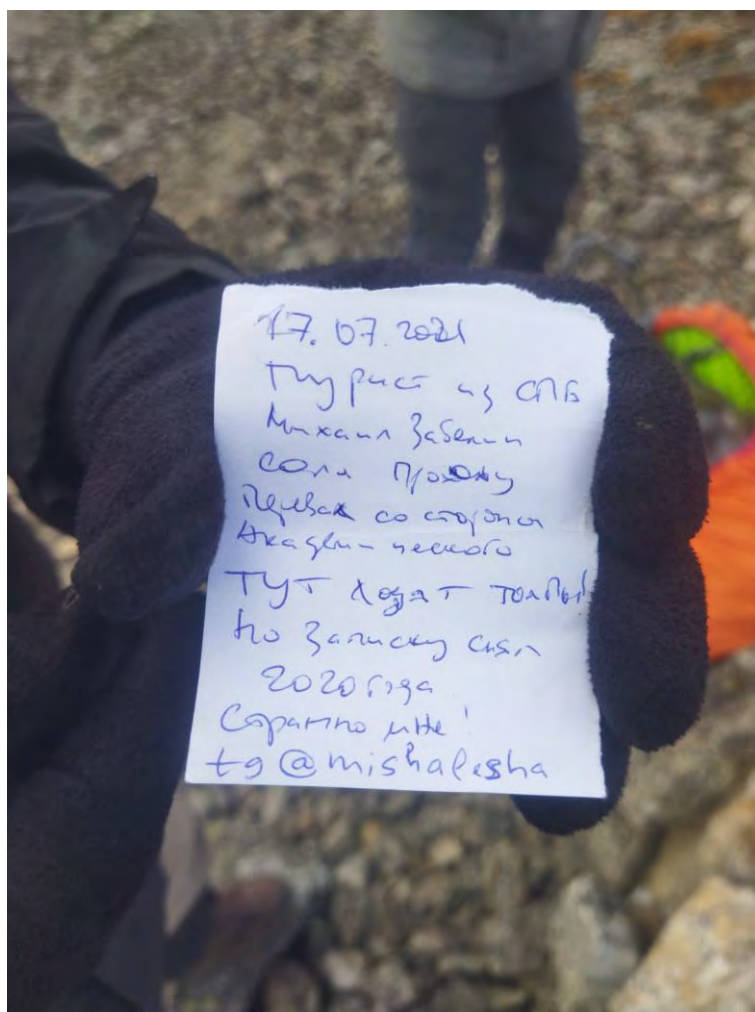 17.07.2021
Турист из СПБ
Михаил Забелин
соло прохожу
Перевал со стороны
Академического
ТУТ ходят толпы!
Но записку снял
2020 года
Странно мне!
tg @mishalesha